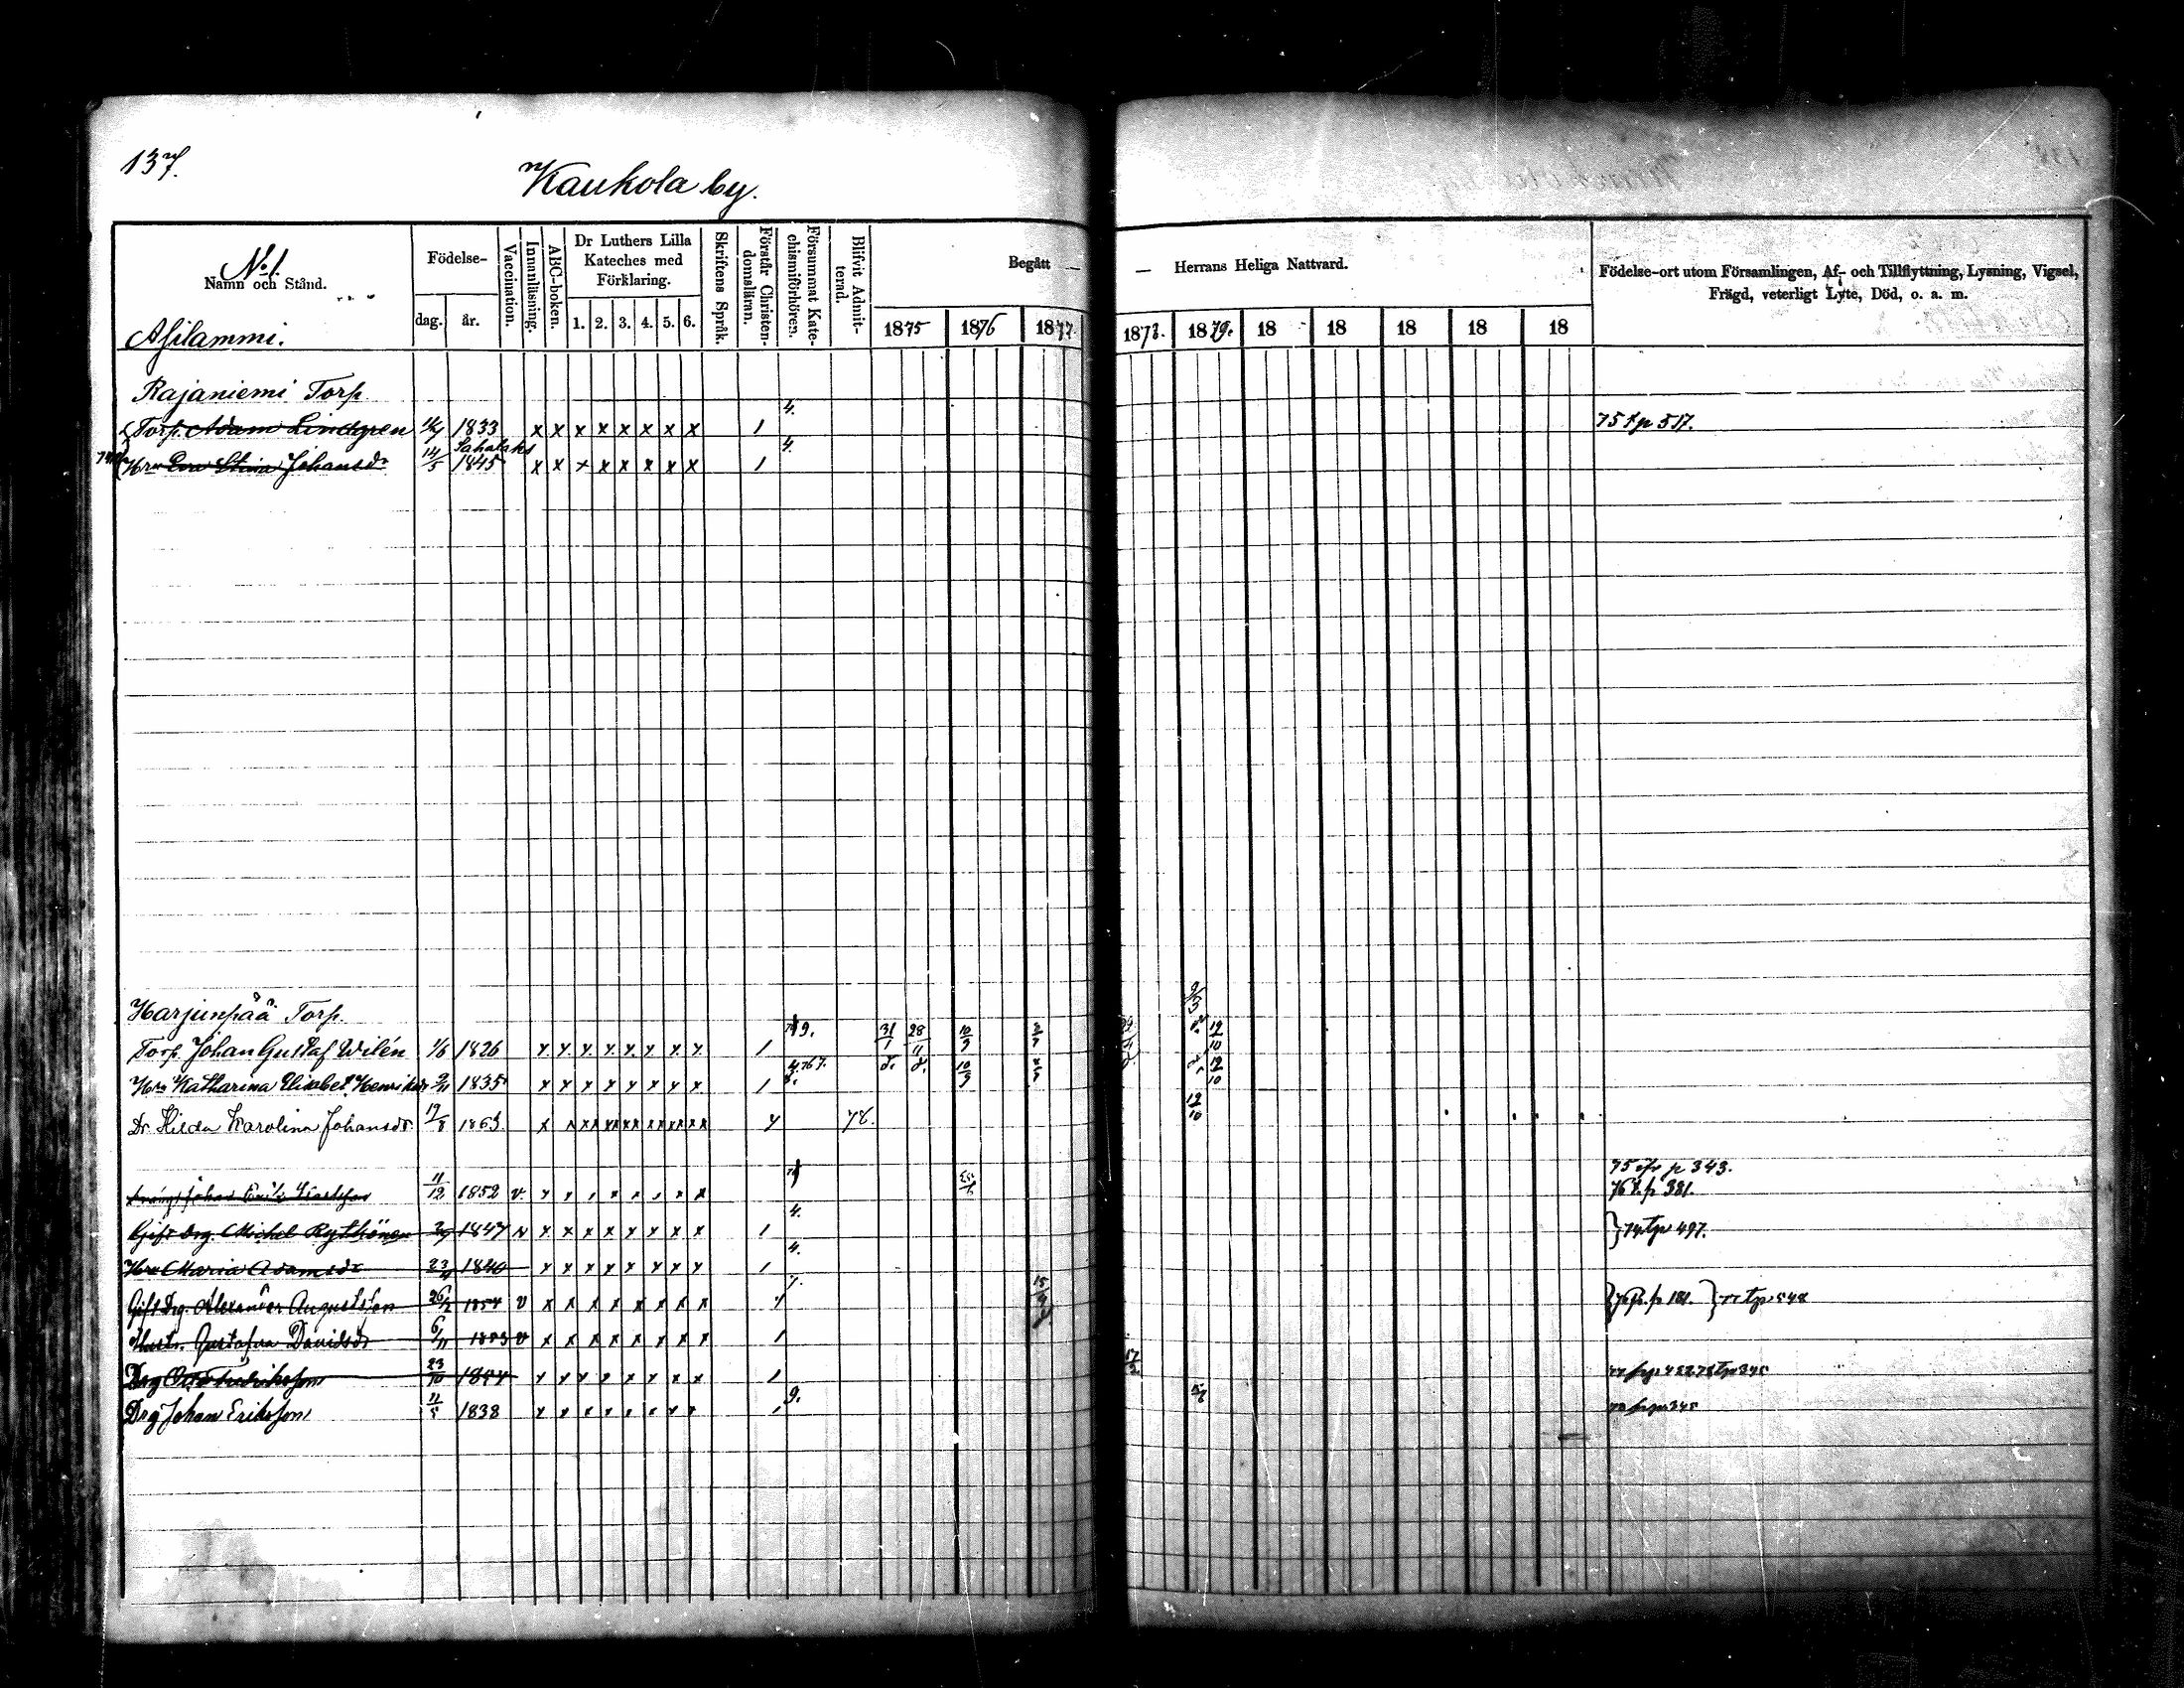 137.
Kaukola by.
No 1.
Namn och Stånd.
Födelse-
dag. år.
Vaccination.
Innanläsning.
ABC-boken.
Dr Luthers Lilla Kateches med Förklaring.
1. 2. 3. 4. 5. 6.
Skriftens Språk.
Förstår Christen-domsläran.
Försummat Kate-chismiförhören.
Blifvit Admit-terad.
Begått — — Herrans Heliga Nattvard.
1875 1876 1877 1878. 1879. 18 18 18 18 18
Födelse-ort utom Församlingen, Af- och Tillflyttning, Lysning, Vigsel, Frägd, veterligt Lyte, Död, o. a. m.
Asilammi.
Rajaniemi Torp.
Torp. Adam Lindgren 1833 x x x x x x x x 1 4. 75 tp 517.
Sahalaks
Hru Eva Stina Johansdr 14/5 1845 x x x x x x x x 1 4.
Harjunpää Torp. 9/3
Torp. Johan Gustaf Wilén 1/6 1826 x x x x x x x x 1 9. 31/1 28/11 10/9 12/10
Hru Katharina Elisabet Henriksdr 9/11 1835 x x x x x x x x 1 d. d. 10/9 12/10
Dr. Hilda Karolina Johansdr 19/8 1863 78. 12/10
75 ifr p 343.
Johan 11/12 1852 v. 76 t. p 381.
Gift drg. Michel Rythönen 1847 v x x x x x x x x 1 4. } 74 tp 497.
Hru Maria Adamsdr 23/4 1840 x x x x x x x x 1 4.
Gift Drg. Alexander Augustsson 26/2 1854 v x x x x x x x x 15/4 } 76 fr. p 181. } 77 tp 548
Hustr. Gustafva Davidsdr 6/11 1853 v x x x x x x x x 1
Drg Otto Fredriksson 23/10 1854 x x x x x x x x 1 17/2 78 tp 345
Drg Johan Eriksson 11/5 1838 9. 78 fr p 345